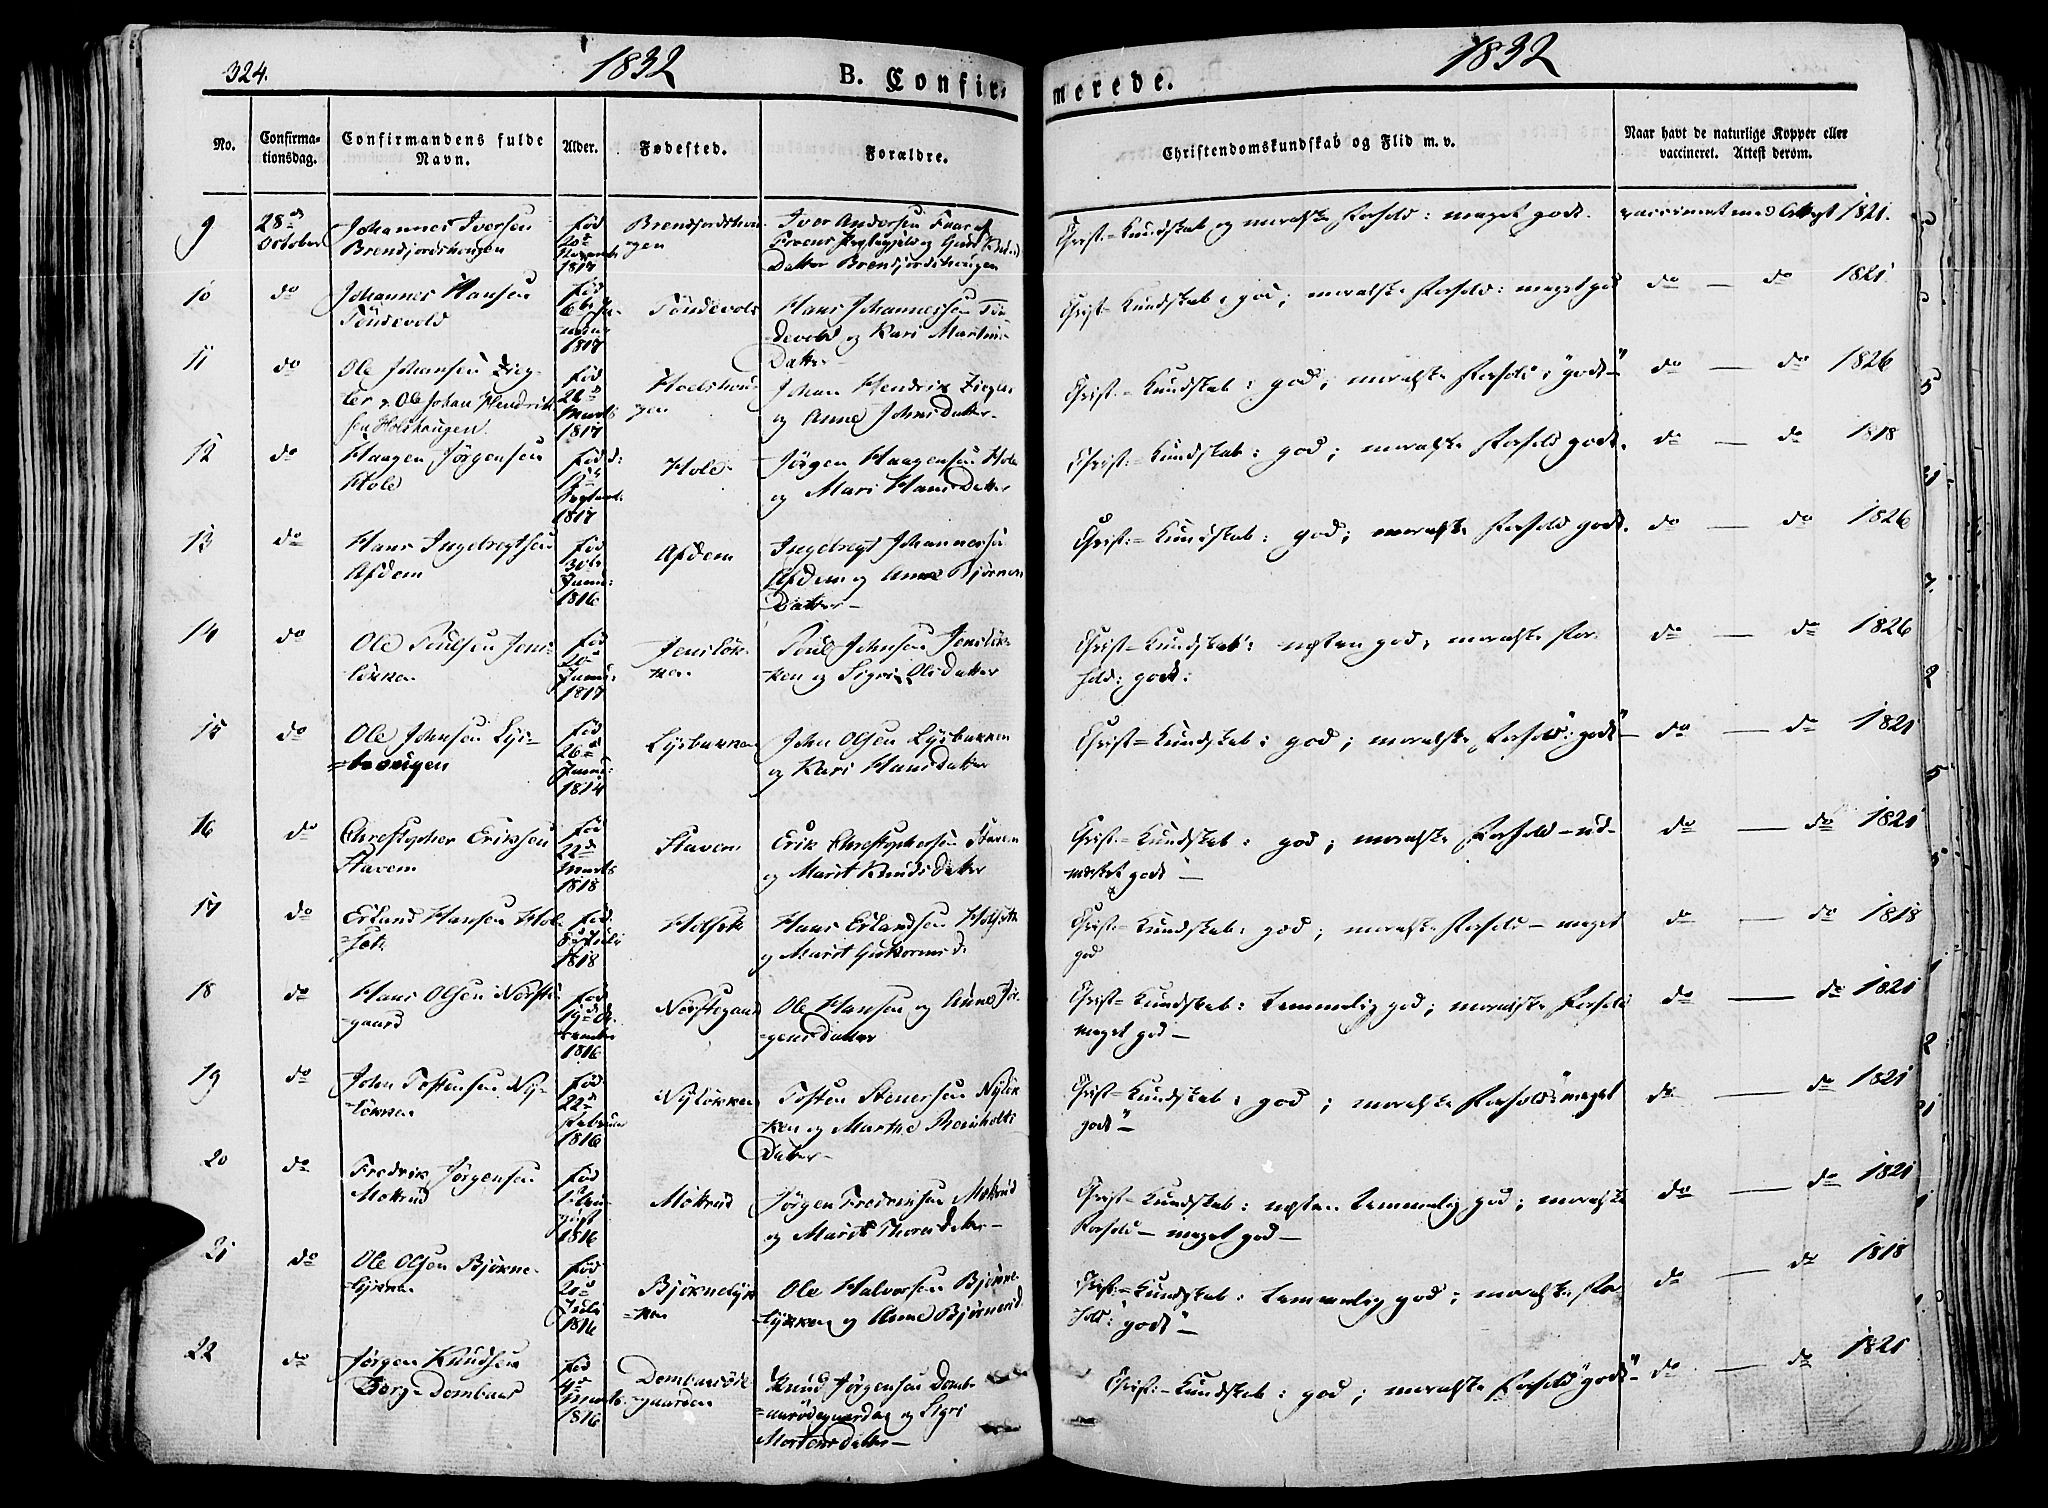 324.
1832
B. Confir-
merede.
1832
No.
Confirma-
tionsdag.
Confirmandens fulde
Navn.
Alder.
Fødested.
Forældre.
Christendomskundskab og Flid m. v.
Naar havt de naturlige Kopper eller
vaccineret. Attest derom.
9
28de
October
Johannes Iversen
Brendjordshougen
fød
20de
Novemb:
1817
Brendjordshou-
gen
Iver Andersen
Datter Brendjordshougen
Christ:-Kundskab og moralske Forhold: meget godt.
vaccineret med Attest 1821.
10
do
Johannes Hansen
Töndevold
fød
6te Ja-
nuar
1817
Töndevold
Hans Johannessen Tön-
devold og Kari Martins
Datter
Christ:-Kundskab: god; moralske Forhold: meget god
do — do 1821
11
do
Ole Johansen Zieg-
ler, Ole Johan Hendrik-
sen Holshougen.
fød
26de
Marts
1817
Hoelshou-
gen
Johan Hendrik Ziegler
og Anne JohnsDatter
Christ:-Kundskab: god; moralske Forhold: "godt"
do — do 1826
12
do
Haagen Jörgensen
Hole
fød d:
Septemb:
1817
Hole
Jörgen Haagensen Hole
og Mari HansDatter
Christ:-Kundskab: god; moralske Forhold godt.
do — do 1818
13
do
Hans Ingebregtsen
Afdem
fød
30te
Juni:
1816
Afdem
Ingebregt Johannessen
Afdem og Anne Björns
Datter
Christ:-Kundskab: god; moralske Forhold godt.
do — do 1826
14
do
Ole Poulsen Jens-
lökken
fød
20de
1817
Jenslök-
ken
Poul Johnsen Jenslök-
ken og Sigri OlsDatter
Christ:-Kundskab: næsten god; moralske For-
hold: godt:
do — do 1826
15
do
Ole Johnsen Lys-
=hougen
fød
26de
1814
Lysbakken
John Olsen Lysbakken
og Kari HansDatter
Christ:-Kundskab: god; moralske Forhold: "godt"
do — do 1821
16
do
Christopher Eriksen
Stavem
fød
22de
Marts
1818
Stavem
Erik Christophersen Stavem
og Marit KnudsDatter
Christ:-Kundskab: god; moralske Forhold - ud-
mærket godt —
do — do 1821
17
do
Erland Hansen Hol-
set
fød
Juli
1818
Holset
Hans Erlandsen Holseth
og Marit Guttormsd:
Christ:-Kundskab: god; moralske Forhold - meget
god
do — do 1818
18
do
Hans Olsen Nörste-
gaard
fød
19de De-
cember
1816
Nörstegaard
Ole Hansen og Anne Jör-
gensDatter
Christ:-Kundskab: temmelig god; moralske Forhold
meget god —
do — do 1821
19
do
John Tostensen Ny-
lökken
fød
22de
Februar
1816
Nylökken
Tosten Stenersen Nylök-
ken og Marthe Reinholts
Datter
Christ:-Kundskab: god; moralske Forhold "meget
godt" —
do — do 1821
20
do
Fredrik Jörgensen
Mökrud
fød
1816
Mökrud
Jörgen Fredriksen Mökrud
og Marit ThoresDatter
Christ:-Kundskab: næsten temmelig god; moralske
Forhold - meget god —
do — do 1821
21
do
Ole Olsen Björne-
lykken
fød
20de
Juli
1816
Björnelyk-
=ken
Ole Halvorsen Björne-
lykken og Anne Björnsd.
Christ:-Kundskab: temmelig god; moralske For-
hold: "godt" —
do — do 1818
22
do
Jörgen Knudsen
Dombaas
fød
Marts
1816
Dombaasöde-
gaarden
Knud Jörgensen Domb-
=aasödegaarden og Sigri
MortensDatter
Christ:-Kundskab: god; moralske Forhold "godt"
do — do 1821